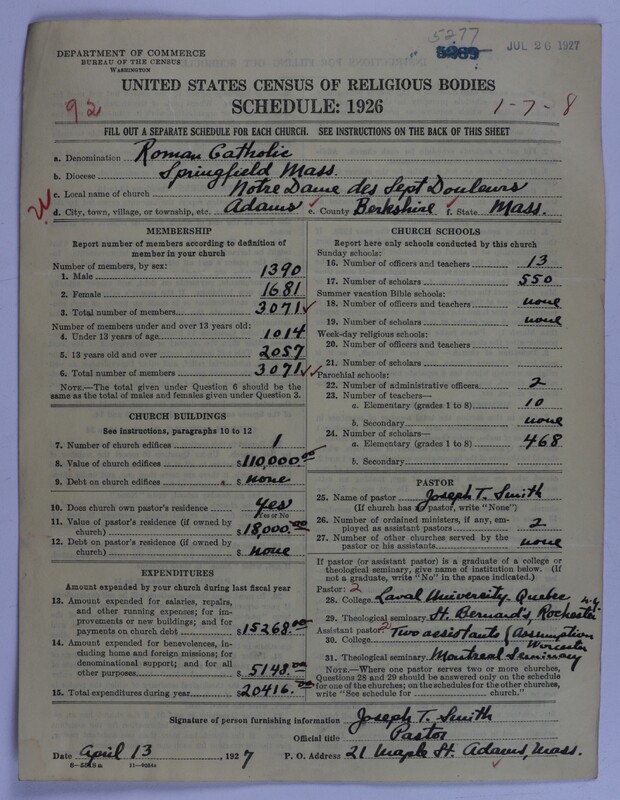 5277
5089
JUL 26 1927
DEPARTMENT OF COMMERCE
BUREAU OF THE CENSUS
WASHINGTON
UNITED STATES CENSUS OF RELIGIOUS BODIES
SCHEDULE: 1926
92
1-7-8
FILL OUT A SEPARATE SCHEDULE FOR EACH CHURCH. SEE INSTRUCTIONS ON THE BACK OF THIS SHEET
a. Denomination Roman Catholic
b. Diocese Springfield Mass.
c. Local name of church Notre Dame des Sept Douleurs
d. City, town, village, or township, etc. Adams e. County Berkshire f. State Mass.
MEMBERSHIP
Report number of members according to definition of
member in your church
Number of members, by sex:
1. Male 1390
2. Female 1681
3. Total number of members 3071
Number of members under and over 13 years old:
4. Under 13 years of age 1014
5. 13 years old and over 2057
6. Total number of members 3071
NOTE.—The total given under Question 6 should be
same as the total of males and females given under Question 3.
CHURCH BUILDINGS
See instructions, paragraphs 10 to 12
7. Number of church edifices 1
8. Value of church edifices $110,000.00
9. Debt on church edifices $none
10. Does church own pastor's residence yes
Yes or No
11. Value of pastor's residence (if owned by
church) $18,000.00
12. Debt on pastor's residence (if owned by
church) $none
EXPENDITURES
Amount expended by your church during last fiscal year
13. Amount expended for salaries, repairs,
and other running expenses; for im-
provements or new buildings; and for
payments on church debt $15268.00
14. Amount expended for benevolences, in-
cluding home and foreign missions; for
denominational support; and for all
other purposes $5148.00
15. Total expenditures during year $20416.00
CHURCH SCHOOLS
Report here only schools conducted by this church
Sunday schools:
16. Number of officers and teachers 13
17. Number of scholars 550
Summer vacation Bible schools:
18. Number of officers and teachers none
19. Number of scholars none
Week-day religious schools:
20. Number of officers and teachers
21. Number of scholars
Parochial schools:
22. Number of administrative officers 2
23. Number of teachers—
a. Elementary (grades 1 to 8) 10
b. Secondary none
24. Number of scholars—
a. Elementary (grades 1 to 8) 468
b. Secondary
PASTOR
25. Name of pastor Joseph T. Smith
(If church has no pastor, write "None")
26. Number of ordained ministers, if any, em-
ployed as assistant pastors 2
27. Number of other churches served by the
pastor or his assistants none
If pastor (or assistant pastor) is a graduate of a college or
theological seminary, give name of institution below. (If
not a graduate, write "No" in the space indicated.)
Pastor: 2
28. College Laval University Quebec
29. Theological seminary St. Bernard's, Rochester N.Y.
Assistant pastor: 2 Two assistants (Assumption
30. College Worcester
31. Theological seminary Montreal Seminary
NOTE.—Where one pastor serves two or more churches,
Questions 28 and 29 should be answered only on the schedule
for one of the churches; on the schedules for the other churches,
write "See schedule for church."
Signature of person furnishing information Joseph T. Smith
Official title Pastor
Date April 13, 1927 P. O. Address 21 Maple St. Adams, Mass.